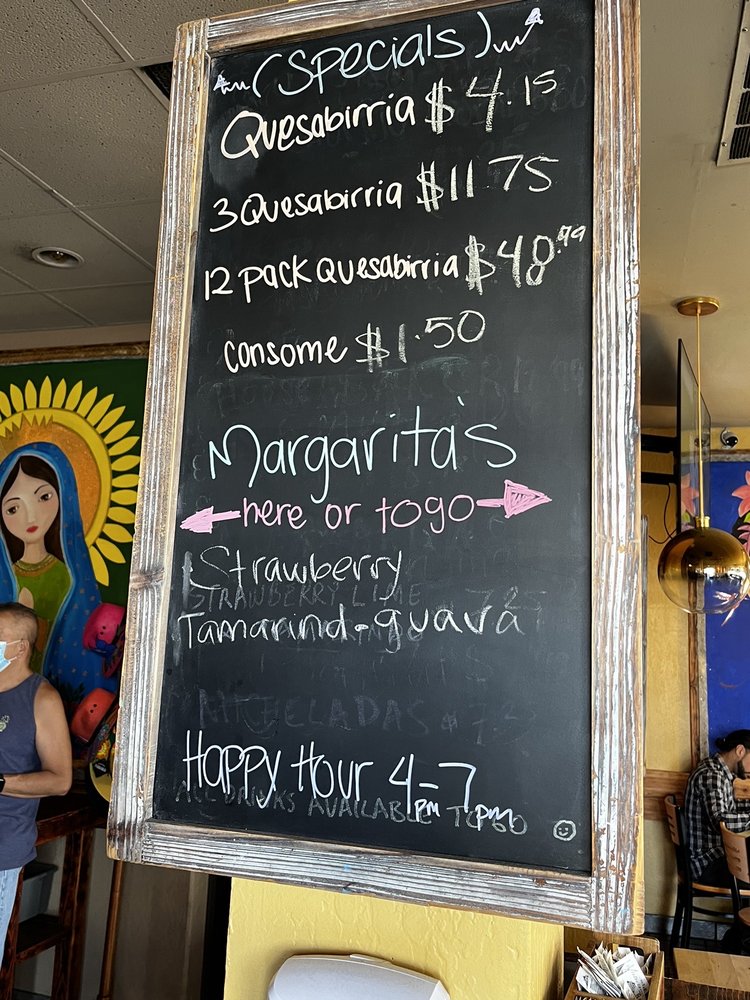 (Specials)
Quesabirria $4.15
3 Quesabirria $11.75
12 pack Quesabirria $48.99
Consome $1.50
Margarita's
here or togo
Strawberry
STRAWBERRY LIME
Tamarind-guava
MICHELADAS
Happy Hour 4pm-7pm
ALL DRINKS AVAILABLE TO GO